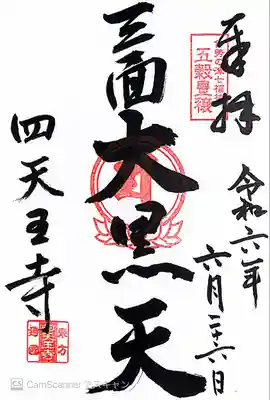 奉拝
五穀豊穣
令和六年
六月二十六日
三面大黒天
四天王寺
CS CamScanner でスキャン